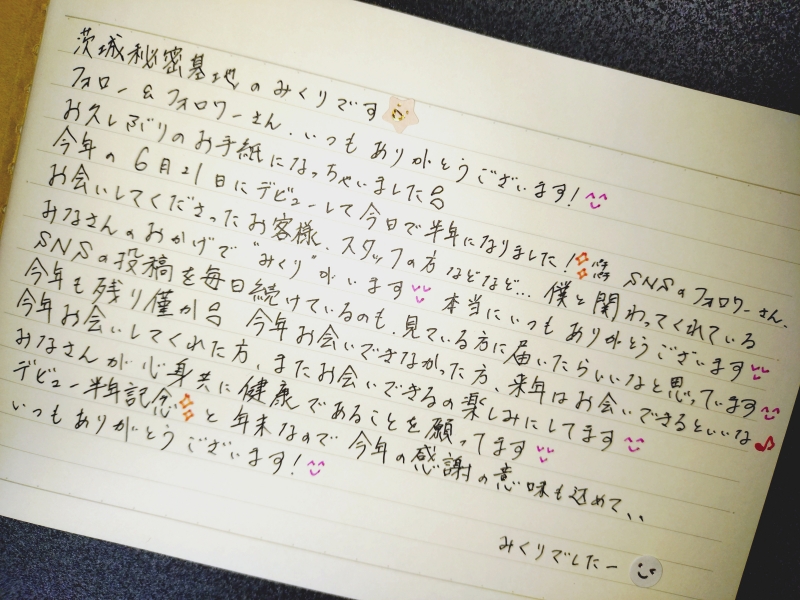 茨城秘密基地のみくりです
フォロー&フォロワーさん、いつもありがとうございます!
お久しぶりのお手紙になっちゃいました
今年の6月21日にデビューして今日で半年になりました!
お会いしてくださったお客様、スタッフの方などなど... SNSのフォロワーさん、
みなさんのおかげで"みくり"がいます 僕と関わってくれている
本当にいつもありがとうございます
SNSの投稿を毎日続けているのも、見ている方に届いたらいいなと思っています
今年も残り僅か 今年お会いできなかった方、来年はお会いできるといいな♪
今年お会いしてくれた方、またお会いできるの楽しみにしてます
みなさんが心身共に健康であることを願ってます
デビュー半年記念と年末なので今年の感謝の意味も込めて、、
いつもありがとうございます!
みくりでしたー